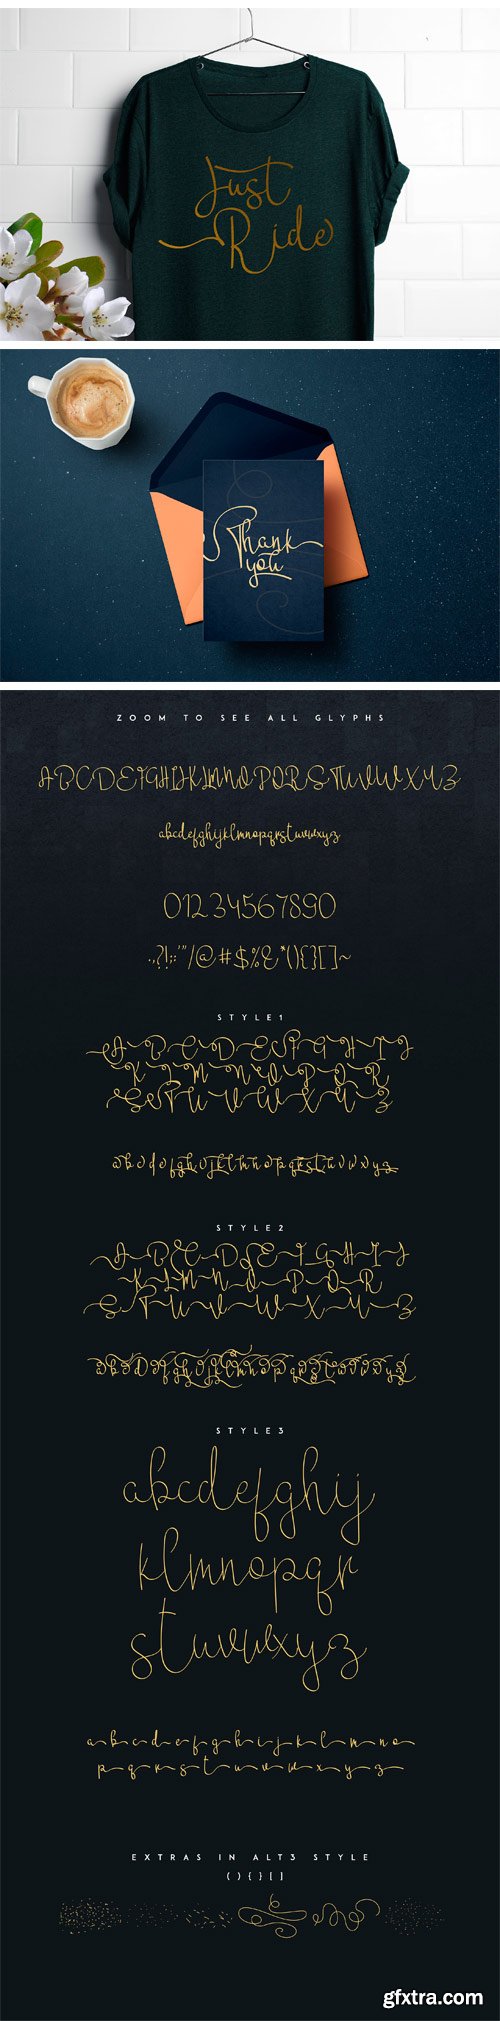 Just
Ride
Thank
you
ZOOM TO SEE ALL GLYPHS
ABCDEFGHIJKLMNOPQRSTUVWXYZ
abcdefghijklmnopqrstuvwxyz
01234567890
.,?!;:'"/@#$%&*(){}[]~
STYLE1
A B C D E F G H I J
K L M N O P Q R
S T U V W X Y Z
a b c d e f g h i j k l m n o p q r s t u v w x y z
STYLE2
A B C D E F G H I J
K L M N O P Q R
S T U V W X Y Z
a b c d e f g h i j k l m n o p q r s t u v w x y z
STYLE3
abcdefghij
klmnopqr
stuvwxyz
a b c d e f g h i j k l m n o
p q r s t u v w x y z
EXTRAS IN ALT3 STYLE
(){}[]
gfxtra.com